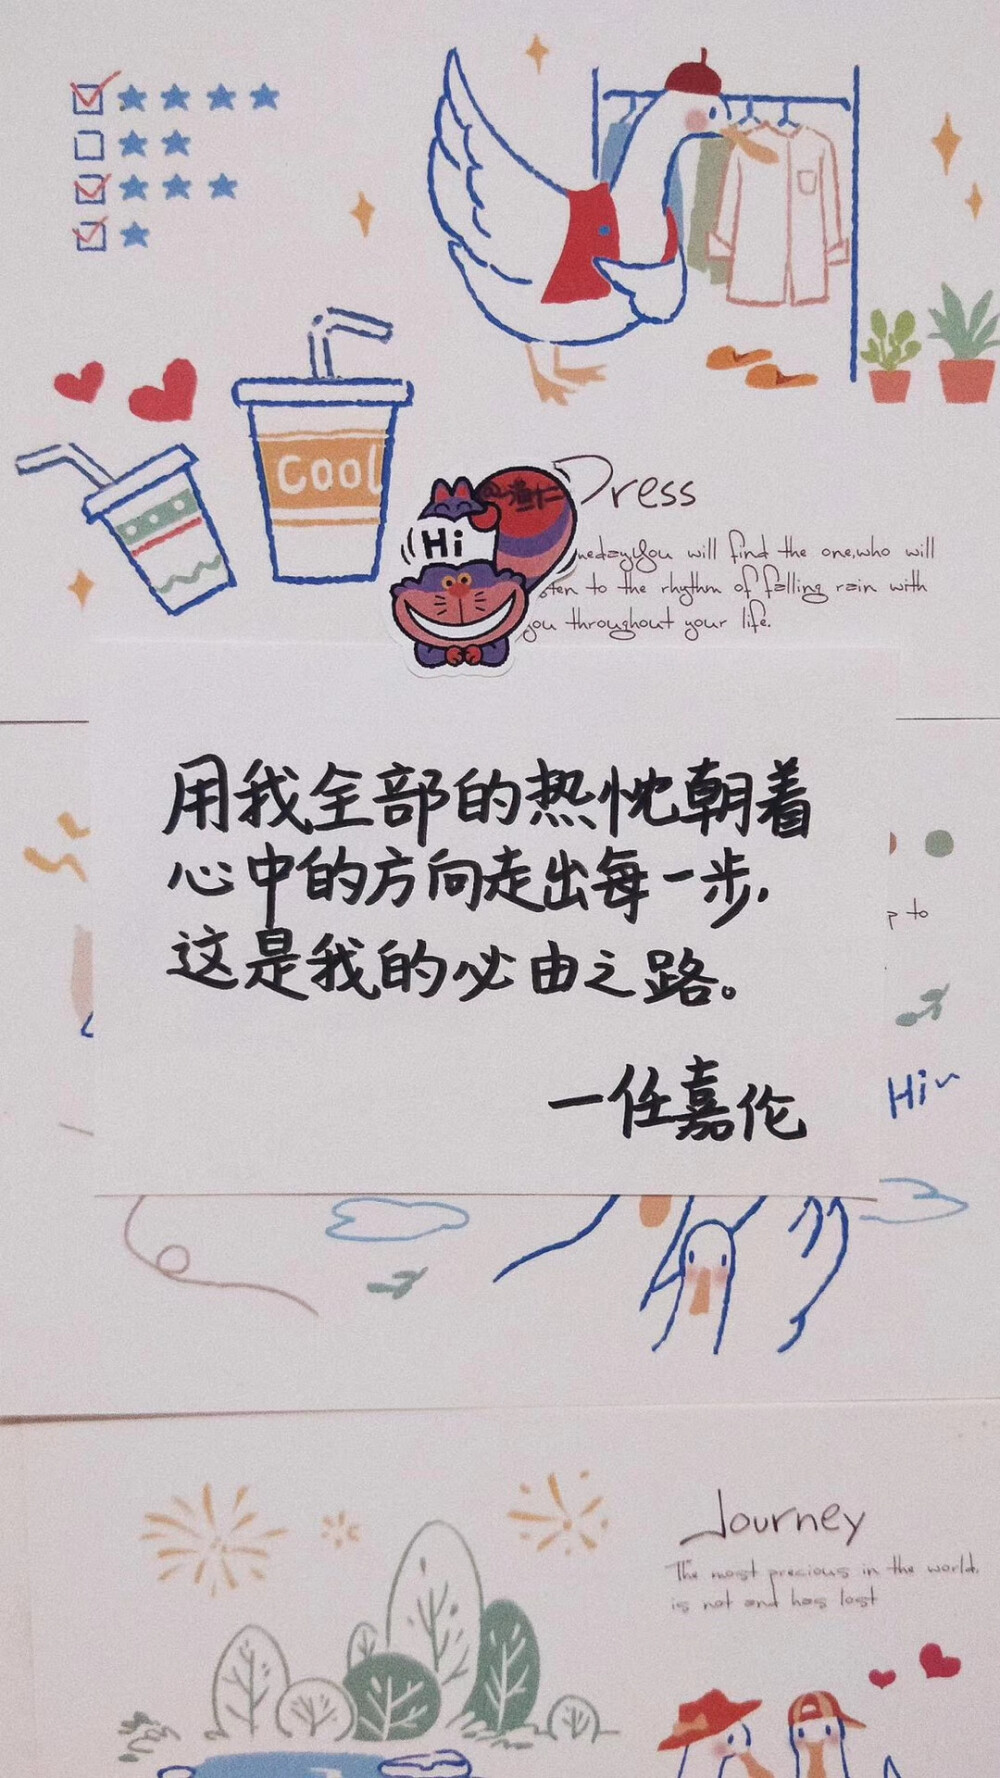 cool
Hi
Dress
you will find the one,who will
to the rhythm of falling rain with
you throughout your life.
用我全部的热忱朝着
心中的方向走出每一步,
这是我的必由之路。
一任嘉伦
to
Hi~
Journey
The most precious in the world,
is not and has lost